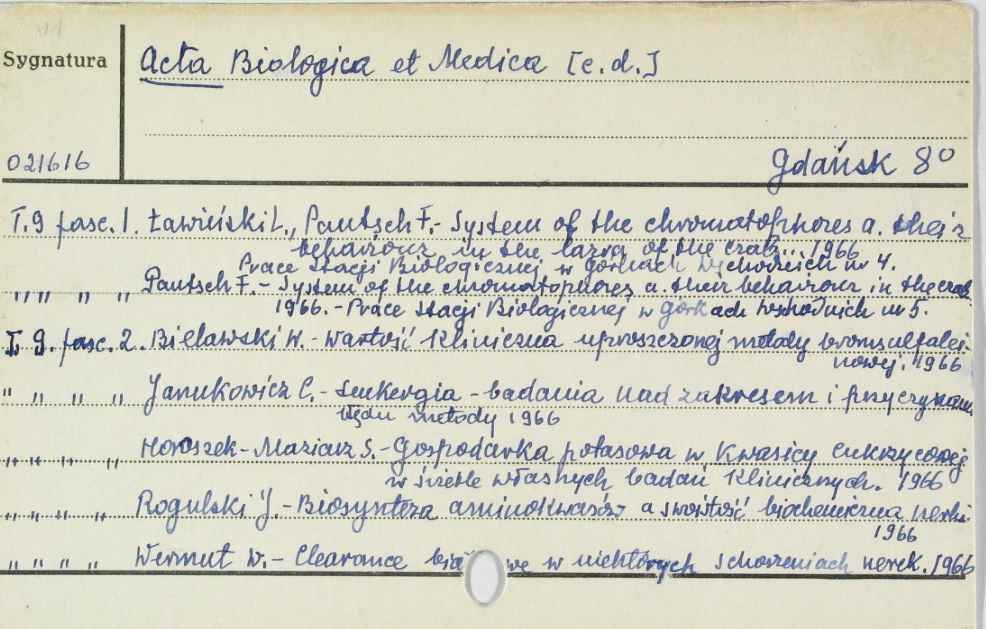 Sygnatura
Acta Biologica et Medica [c.d.]
021616
Gdańsk 8°
T.9 fasc. 1. Ławiński L., Pautsch F. - System of the chromatophores a. their
behaviour in the larva of the crab... 1966
Prace Stacji Biologicznej w Górkach Wschodnich nr 4.
" " " " Pautsch F. - System of the chromatophores a. their behaviour in the crab
1966. - Prace Stacji Biologicznej w Górkach Wschodnich nr 5.
T. 9. fasc. 2. Bielawski W. - Wartość kliniczna uproszczonej metody bromsulfalei-
nowej. 1966
" " " " Janukowicz C. - Leukergia - badania nad zakresem i przyczynami
błędu metody 1966
" " " " Horoszek-Maziarz S. - Gospodarka potasowa w kwasicy cukrzycowej
w świetle własnych badań klinicznych. 1966
" " " " Rogulski J. - Biosynteza aminokwasów a swoistość biochemiczna nerki
1966
" " " " Wermut W. - Clearance w niektórych schorzeniach nerek. 1966